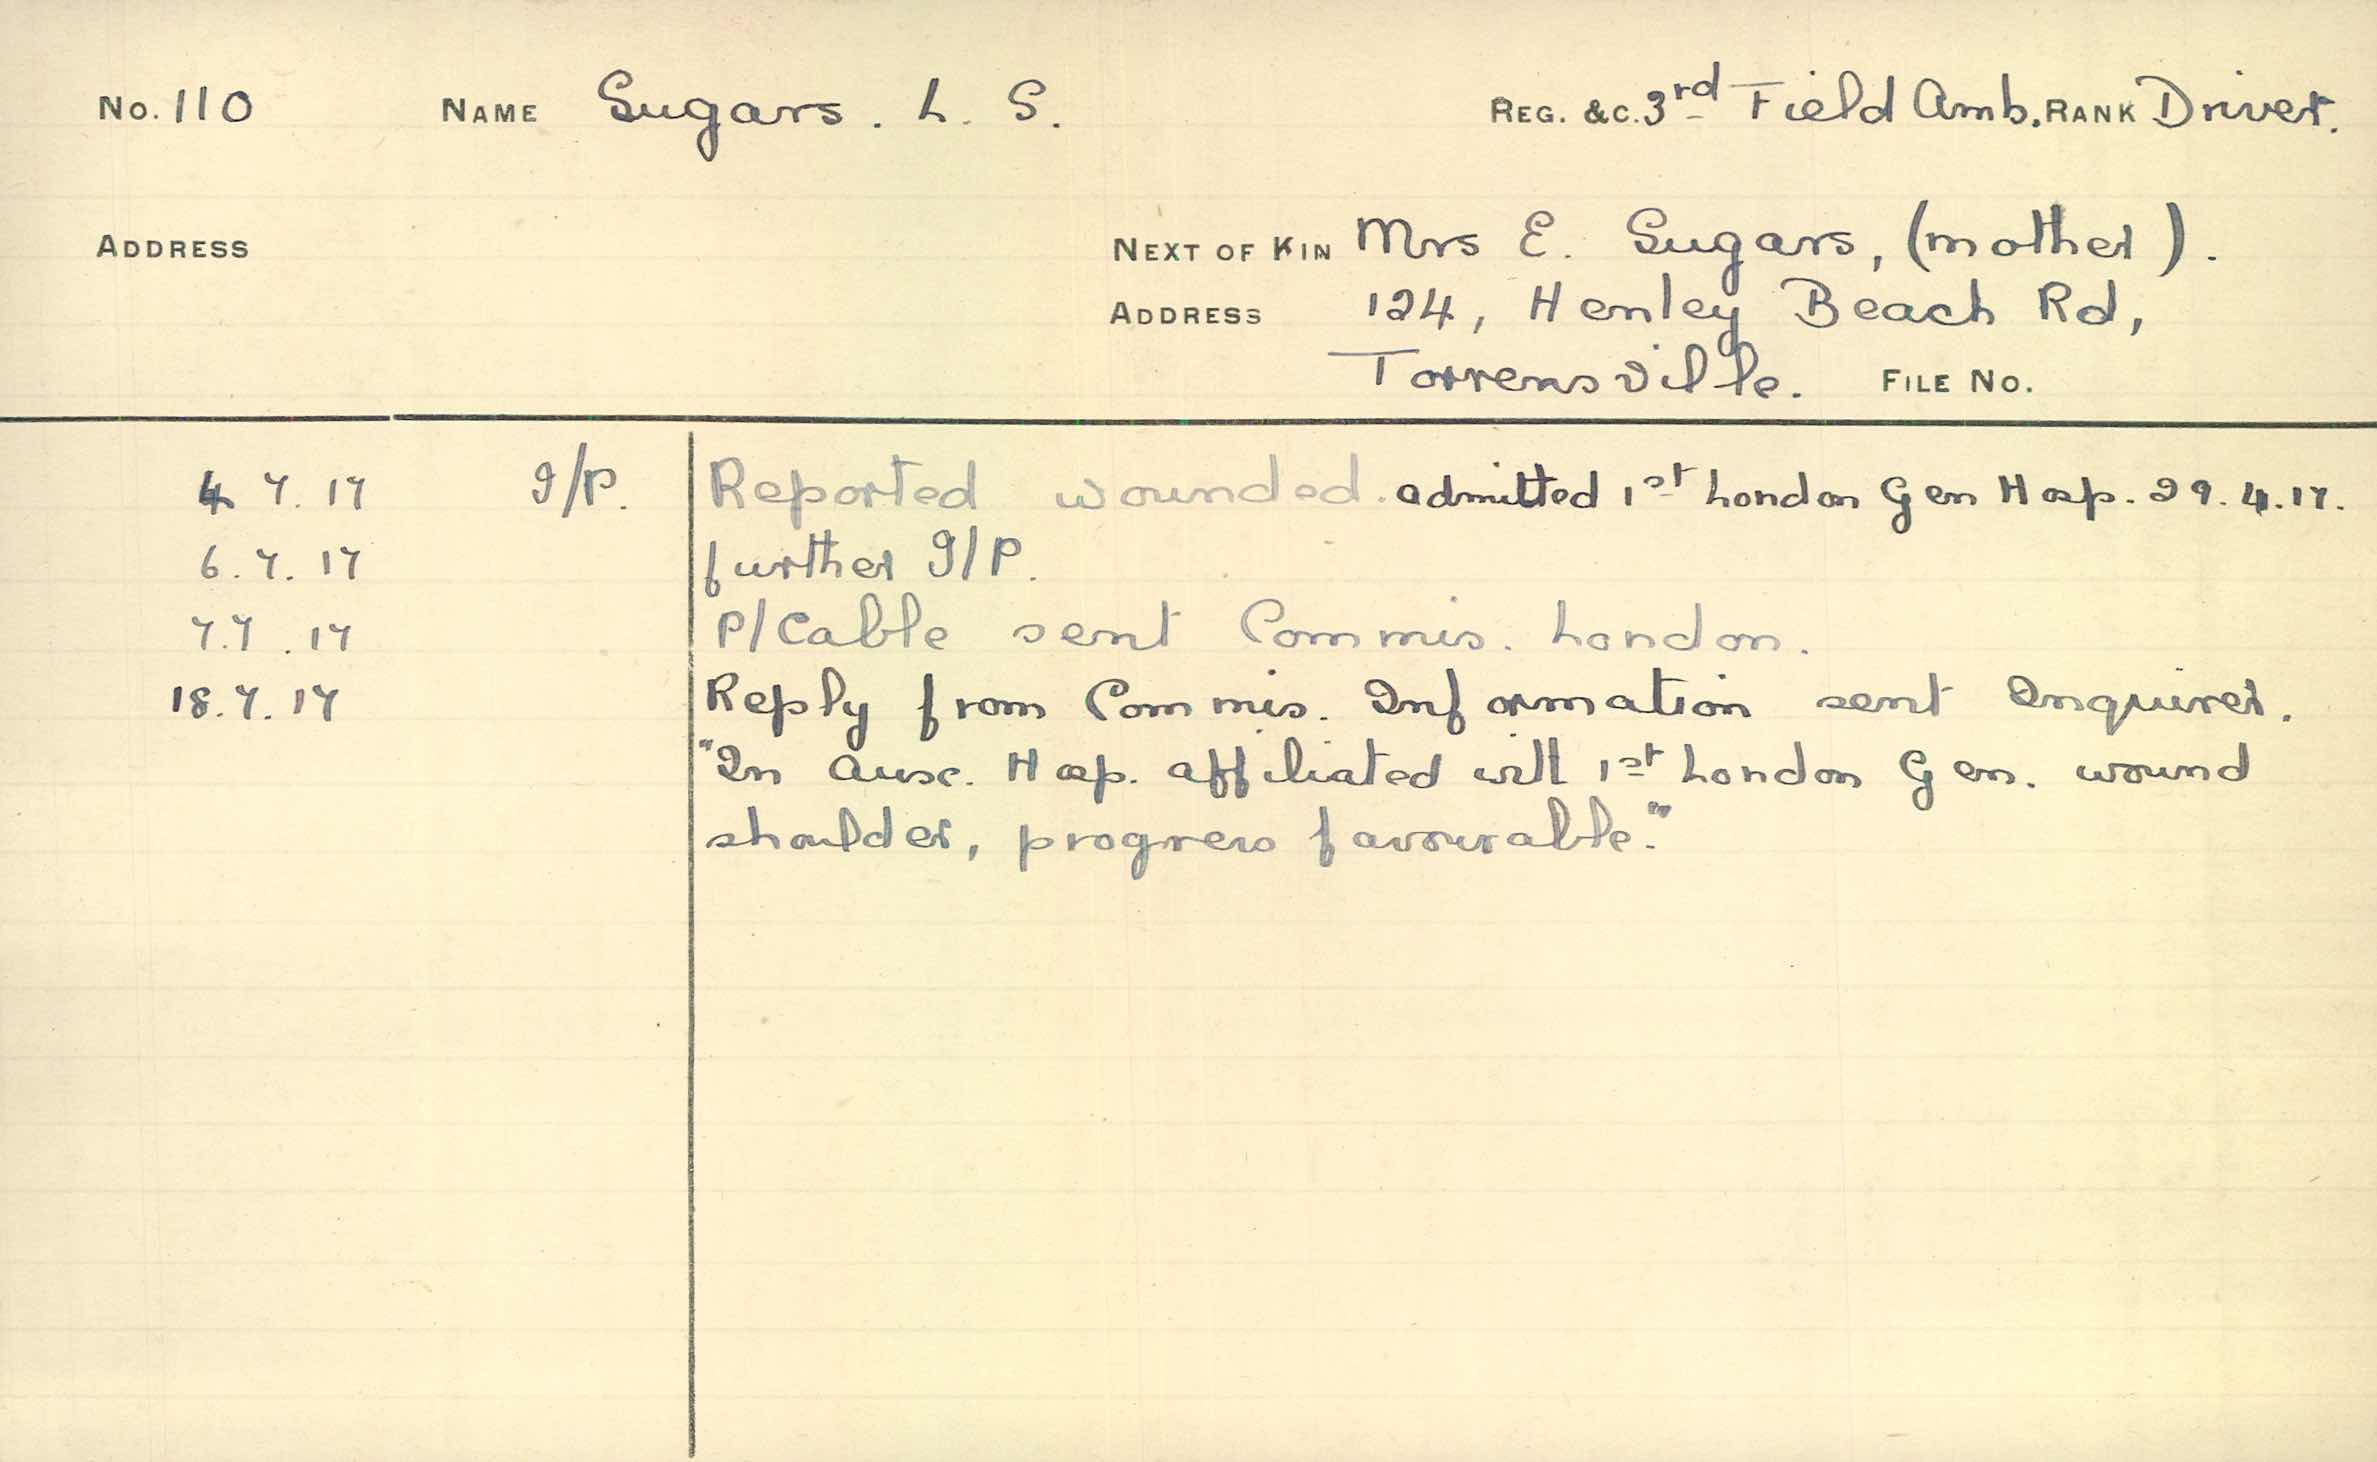 No. 110 NAME Sugars. L. S. REG. &C. 3rd Field Amb. RANK Driver.
ADDRESS NEXT OF KIN Mrs E. Sugars, (mother).
ADDRESS 124, Henley Beach Rd,
Torrensville. FILE No.
4 7. 17 I/P. Reported wounded. admitted 1st London Gen Hosp. 29. 4. 17.
6. 7. 17 further I/P.
7.7. 17 P/Cable sent Commis. London.
18. 7. 17 Reply from Commis. Information sent Enquirer.
"In Ausc. Hosp. affiliated with 1st London Gen. wound
shoulder, progress favourable."